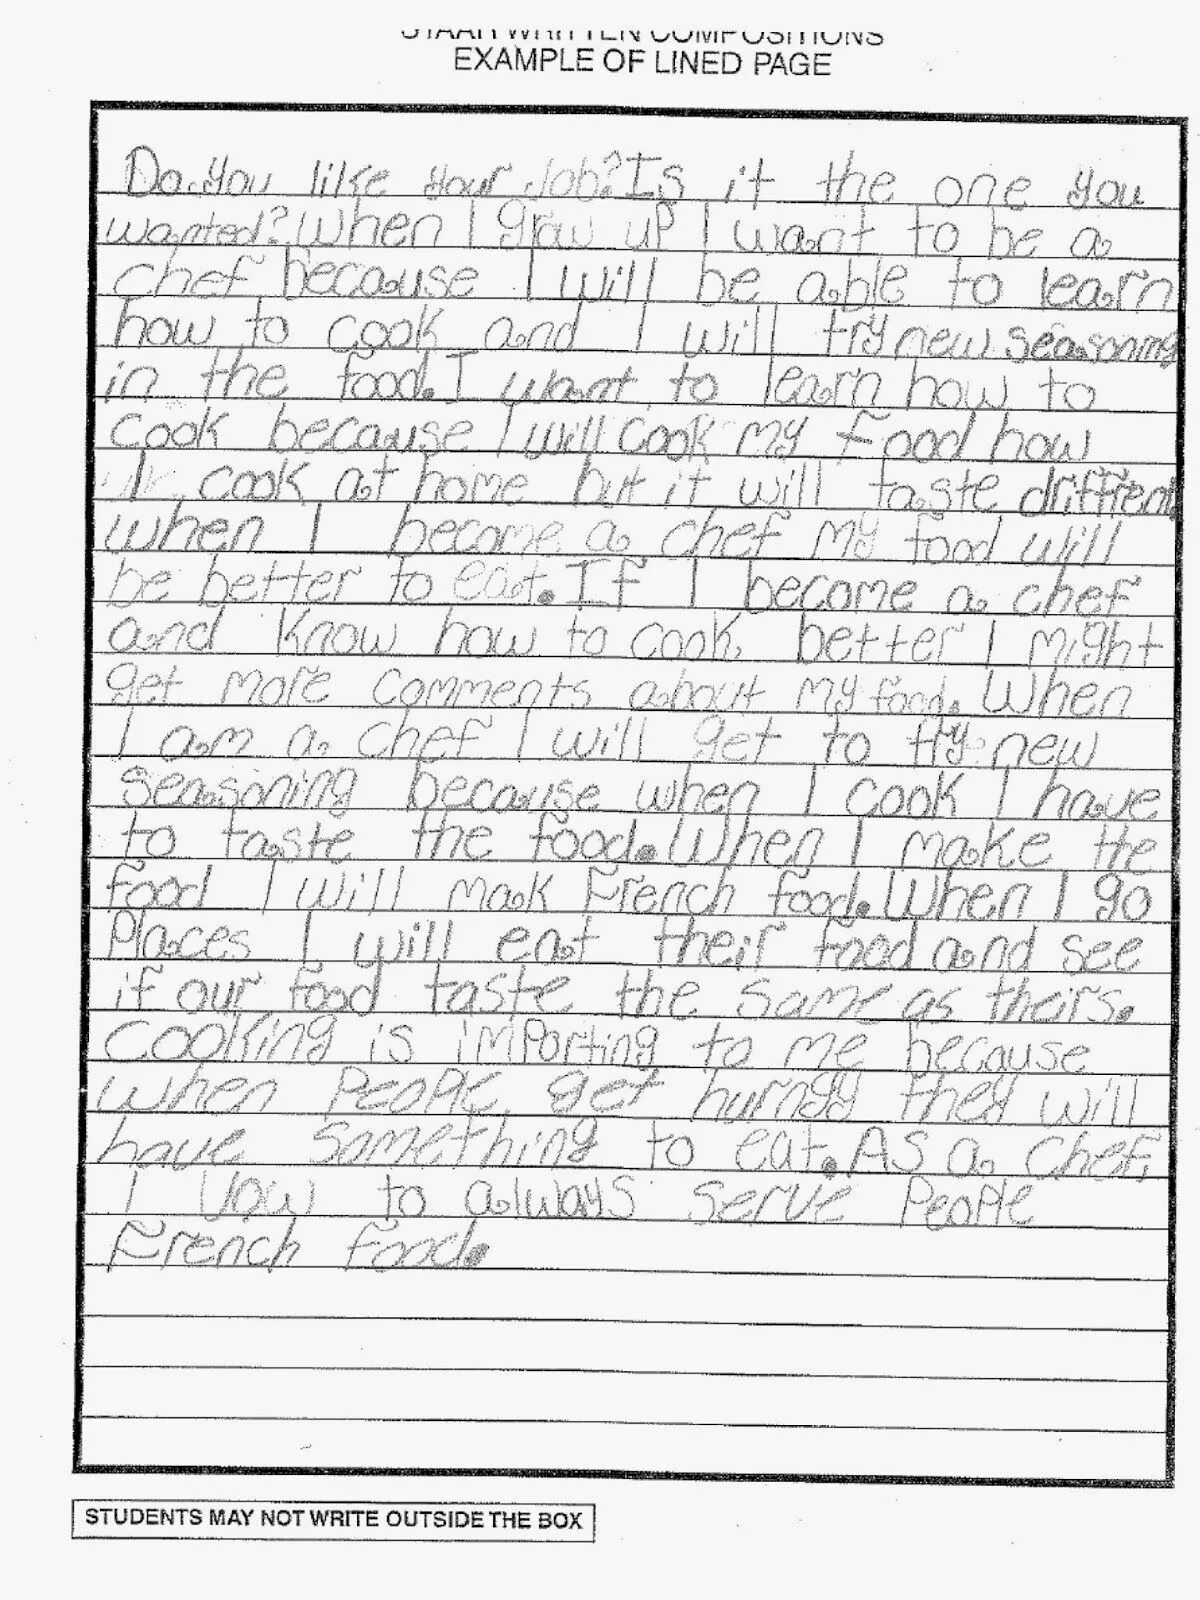 STAAR WRITTEN COMPOSITIONS
EXAMPLE OF LINED PAGE
Do you like your Job? Is it the one you
wanted? When I grow up I want to be a
chef because I will be able to learn
how to cook and I will try new seasoning
in the food. I want to learn how to
cook because I will cook my food how
I cook at home but it will taste driffrent
when I become a chef my food will
be better to eat. If I become a chef
and know how to cook better I might
get more comments about my food. When
I am a chef I will get to try new
seasoning because when I cook I have
to taste the food. When I make the
food I will mak French food. When I go
Places I will eat their food and see
if our food taste the same as theirs.
Cooking is importing to me because
when People get hurngy they will
have something to eat. As a chef,
I vow to always serve People
French food.
STUDENTS MAY NOT WRITE OUTSIDE THE BOX